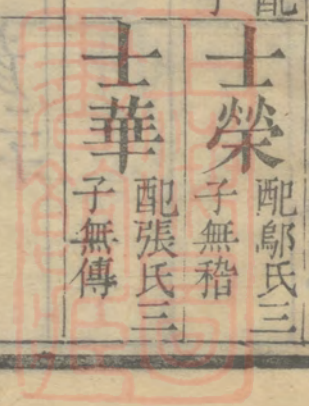 配
士榮
配鄔氏三
子無稽
士華
配張氏三
子無傳